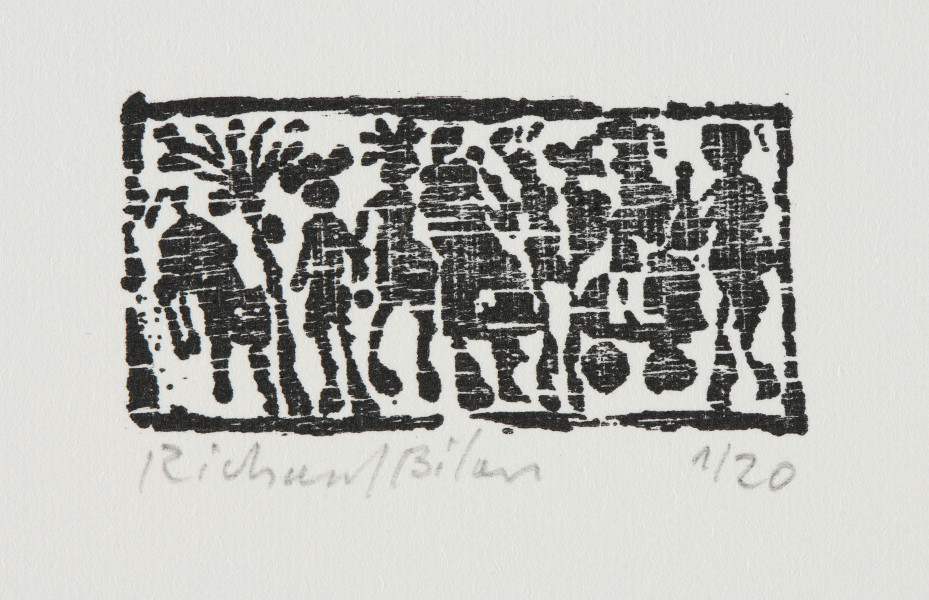 Richard Bilan
1/20